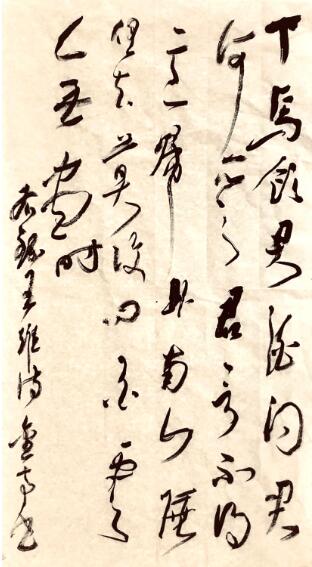 下馬飲君酒問君
何所之君言不得
意歸卧南山陲
但去莫復問白雲
無盡時
右録王維詩